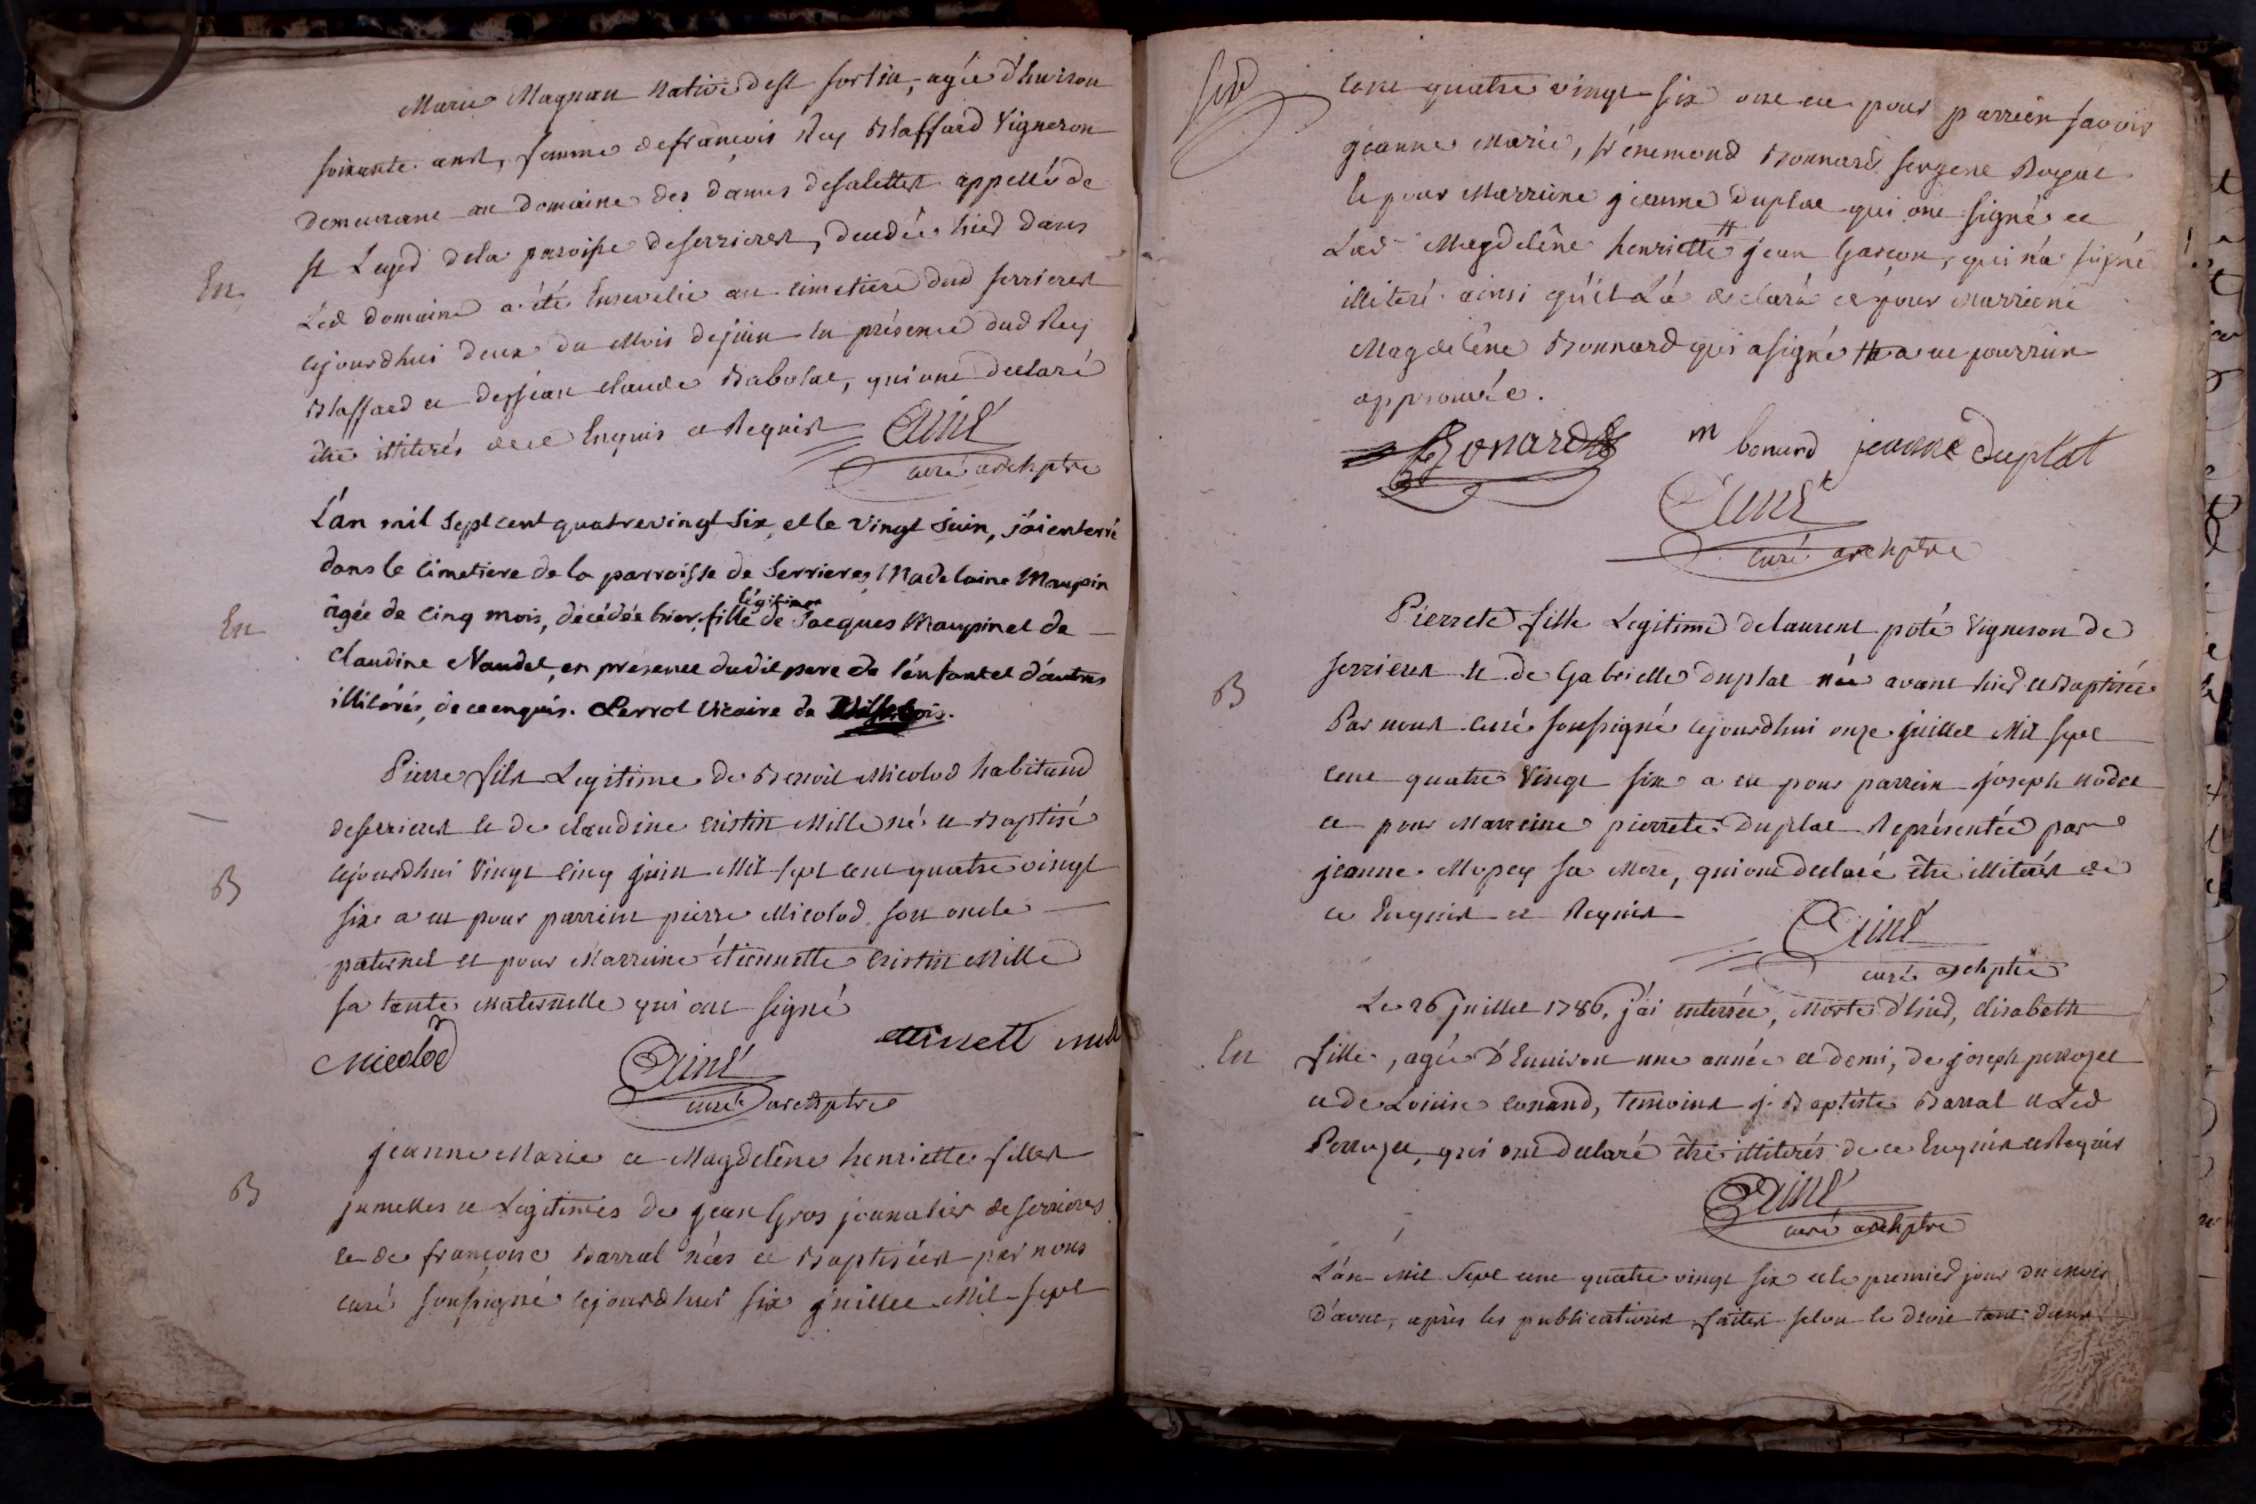 Marie Magnan Native de st sorlin, agée d'huiron
soixante ans, femme de françois Rey Blaffard Vigneron
Demeurant au Domaine des dames de salettes appellé de
st Leger dela paroisse de serrieres, decedée hier dans
En
Led domaine a été Ensevelie au cimetiere dud serrieres
cejourdhui deux du Mois de juin en présence dud Rey
Blaffard et de jean claude Rabolat, qui ont declaré
être illiterés de ce Enquis et Requis
curé archiptre
L'an mil Sept cent quatre vingt Six, et le vingt Juin, j'ai enterré
dans le Cimetiere de la parroisse de Serrieres, Madelaine Maupin
légitime
En
âgée de Cinq mois, décédée hier, fille de Jacques Maupin et de
Claudine Naudet, en présence dudit pere de l'enfant et d'autres
illitérés, de ce enquis. Perrot Vicaire de
Pierre fils Legitime de Benoit Micolod habitand
de serrieres et de claudine cristin Mille né et Baptisé
B
cejourdhui Vingt Cinq juin Mil sept cent quatre vingt
six a eu pour parrein pierre Micolod son oncle
paternel et pour Marreine étiennette cristin Mille
sa tante Maternelle qui ont signé
Micolod
curé archiptre
jeanne Marie et Magdelêne henriette filles
B
jumelles et Legitimes de jean Gros journalier de serrieres
et de françoise Barral nées et Baptisées par nous
curé soussigné cejourdhui six juillet Mil sept
cent quatre vingt six ont eu pour parrein savoir
jeanne Marie, sr énemond Bonnard sergent Royal
et pour Marreine jeanne Duplat qui ont signé et
Lad Magdelêne henriette # jean Garçon, qui n'a signé
illiteré ainsi qu'il L'a declaré et pour Marreine
Magdelêne Bonnard qui a signé # a eu pour parrein
approuvé.
Bonard m bonard jeanne duplat
curé archiptre
Pierrete fille Legitime de laurent poté Vigneron de
serrieres et de Gabrielle duplat née avant hier et Baptisée
B
Par nous curé soussigné cejourdhui onze juillet Mil sept
cent quatre Vingt six a eu pour parrein joseph nodet
et pour Marreine pierrete Duplat Représentée par
jeanne Mopey sa Mere, qui ont declaré être illiterés de
ce Enquis et Requis
curé archiptre
Le 26 juillet 1786, j'ai enterrée, Morte d'hier, elisabeth
En
fille, agée d'Environ une année et demi, de joseph perrozet
et de Louise conand, temoins j. Baptiste Barral et Led
Perrozet, qui ont declaré être illiterés de ce Enquis et Requis
curé archiptre
L'an Mil Sept cent quatre vingt six et le premier jour du mois
D'aout, après les publications faites selon le droit tant dans